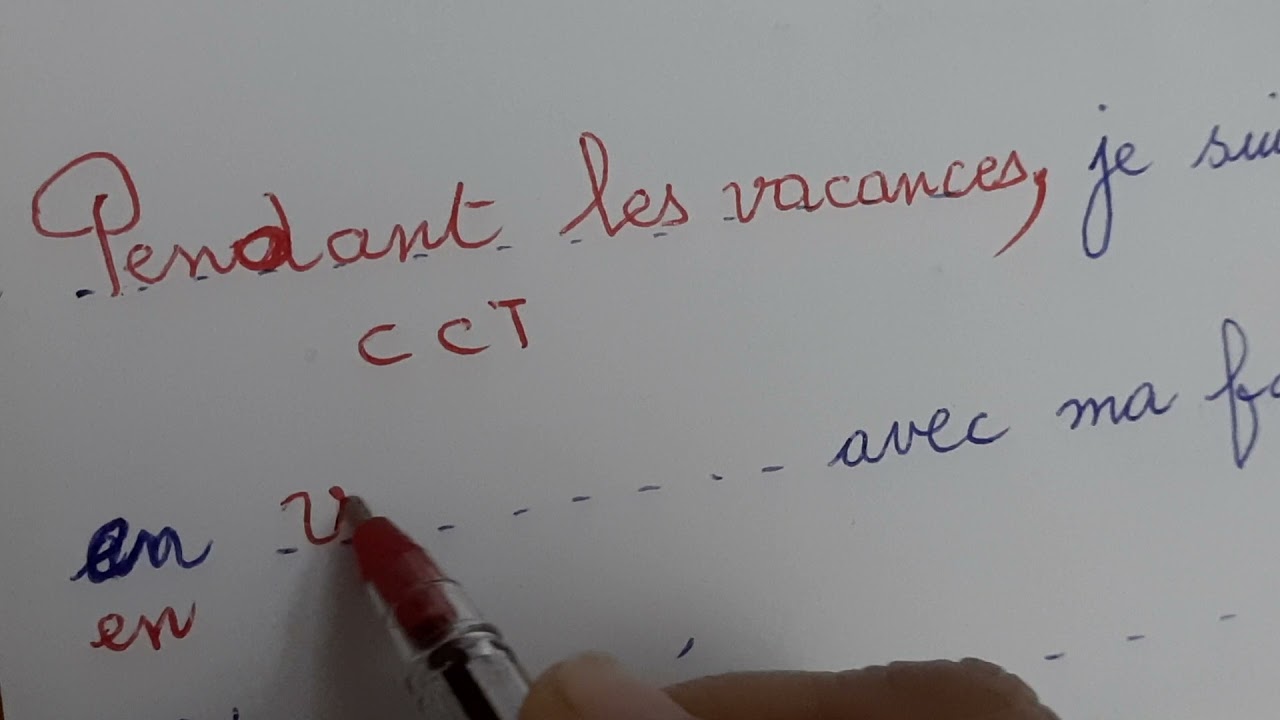 Pendant les vacances, je sui
CCT
en v avec ma fa
en